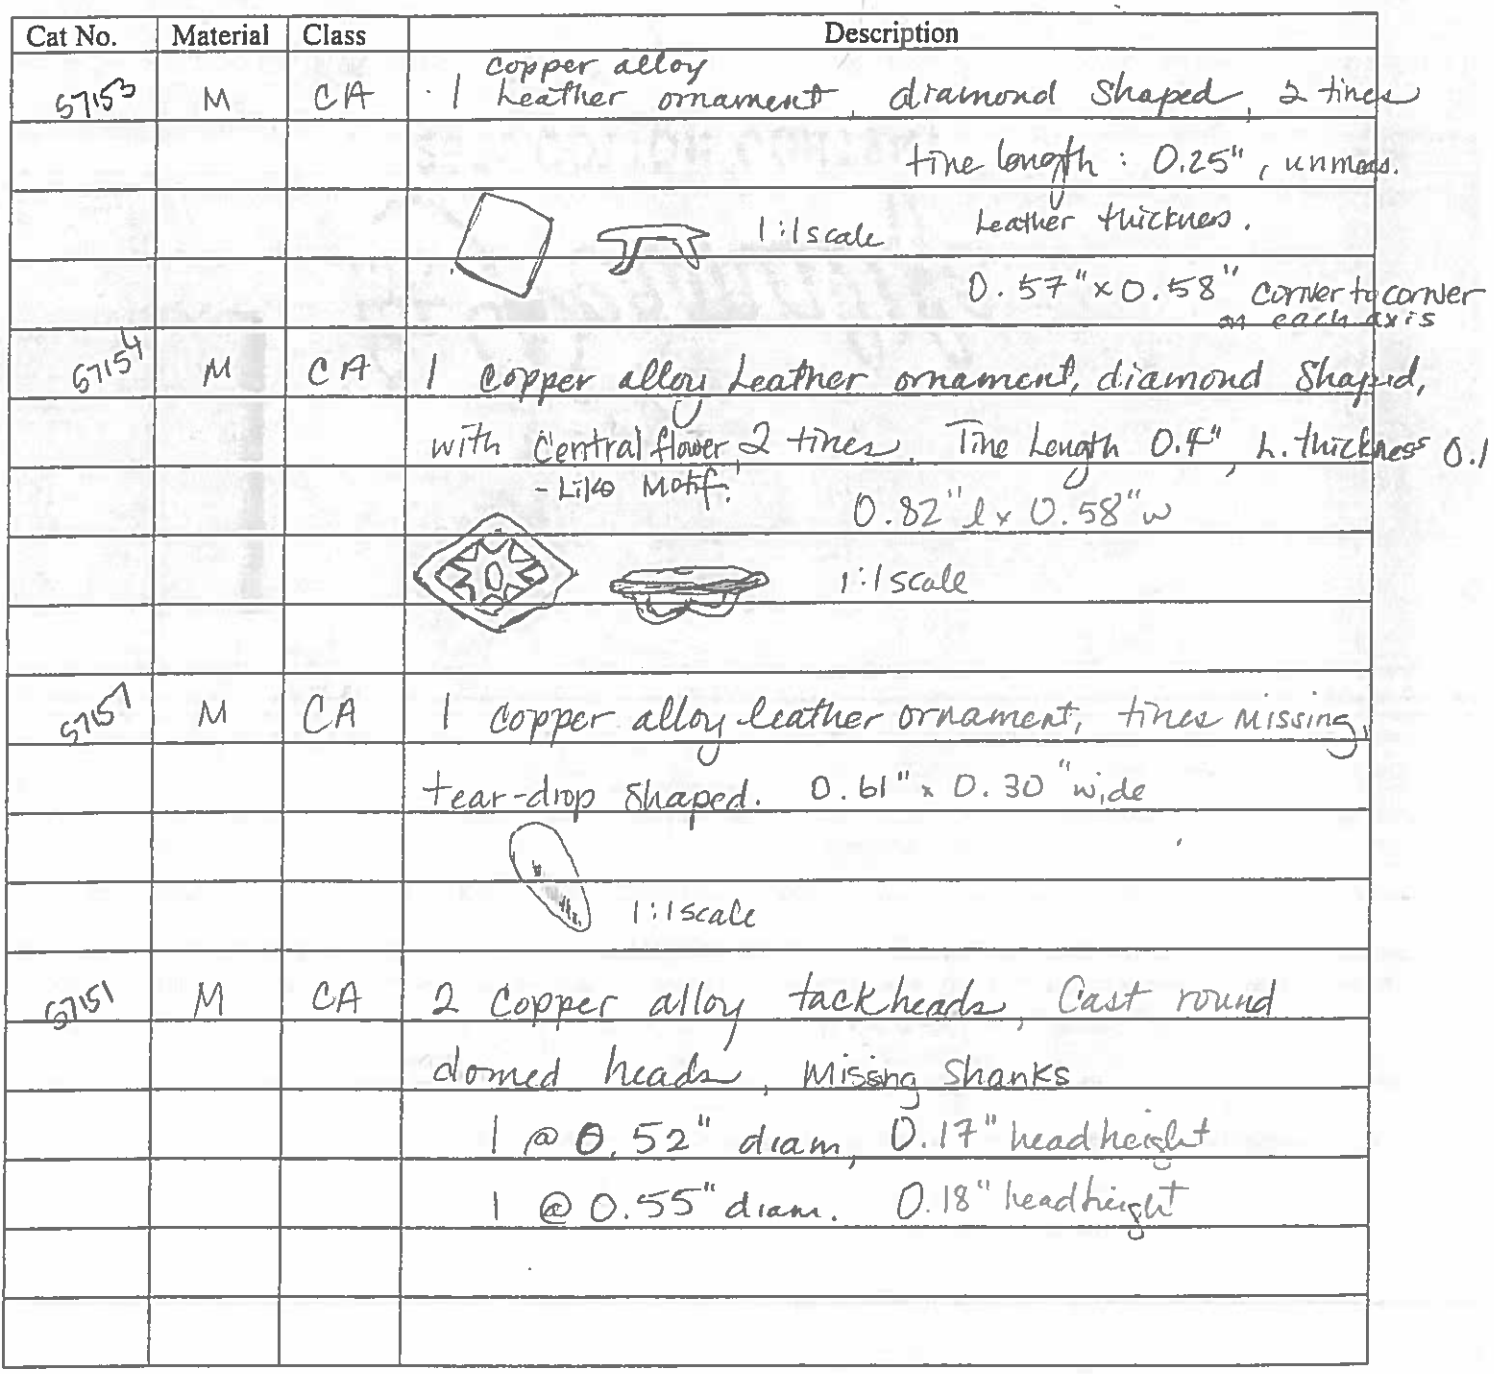 Cat No. Material Class Description
copper alloy
57153 M CA 1 Leather ornament, diamond Shaped, 2 tines
tine length : 0.25", unmeas.
1:1 scale Leather thickness.
0.57" x 0.58" corner to corner
on each axis
57154 M CA 1 copper alloy Leather ornament, diamond Shaped,
with Central flower, 2 tines, Tine Length 0.4", L. thickness 0.1
- Like Motif.
0.82" l x 0.58" w
1:1 scale
57157 M CA 1 copper alloy leather ornament, tines missing,
tear-drop shaped. 0.61" x 0.30" wide
1:1 scale
57151 M CA 2 Copper alloy tackheads, Cast round
domed heads, Missing Shanks
1 @ 0.52" diam, 0.17" head height
1 @ 0.55" diam. 0.18" head height